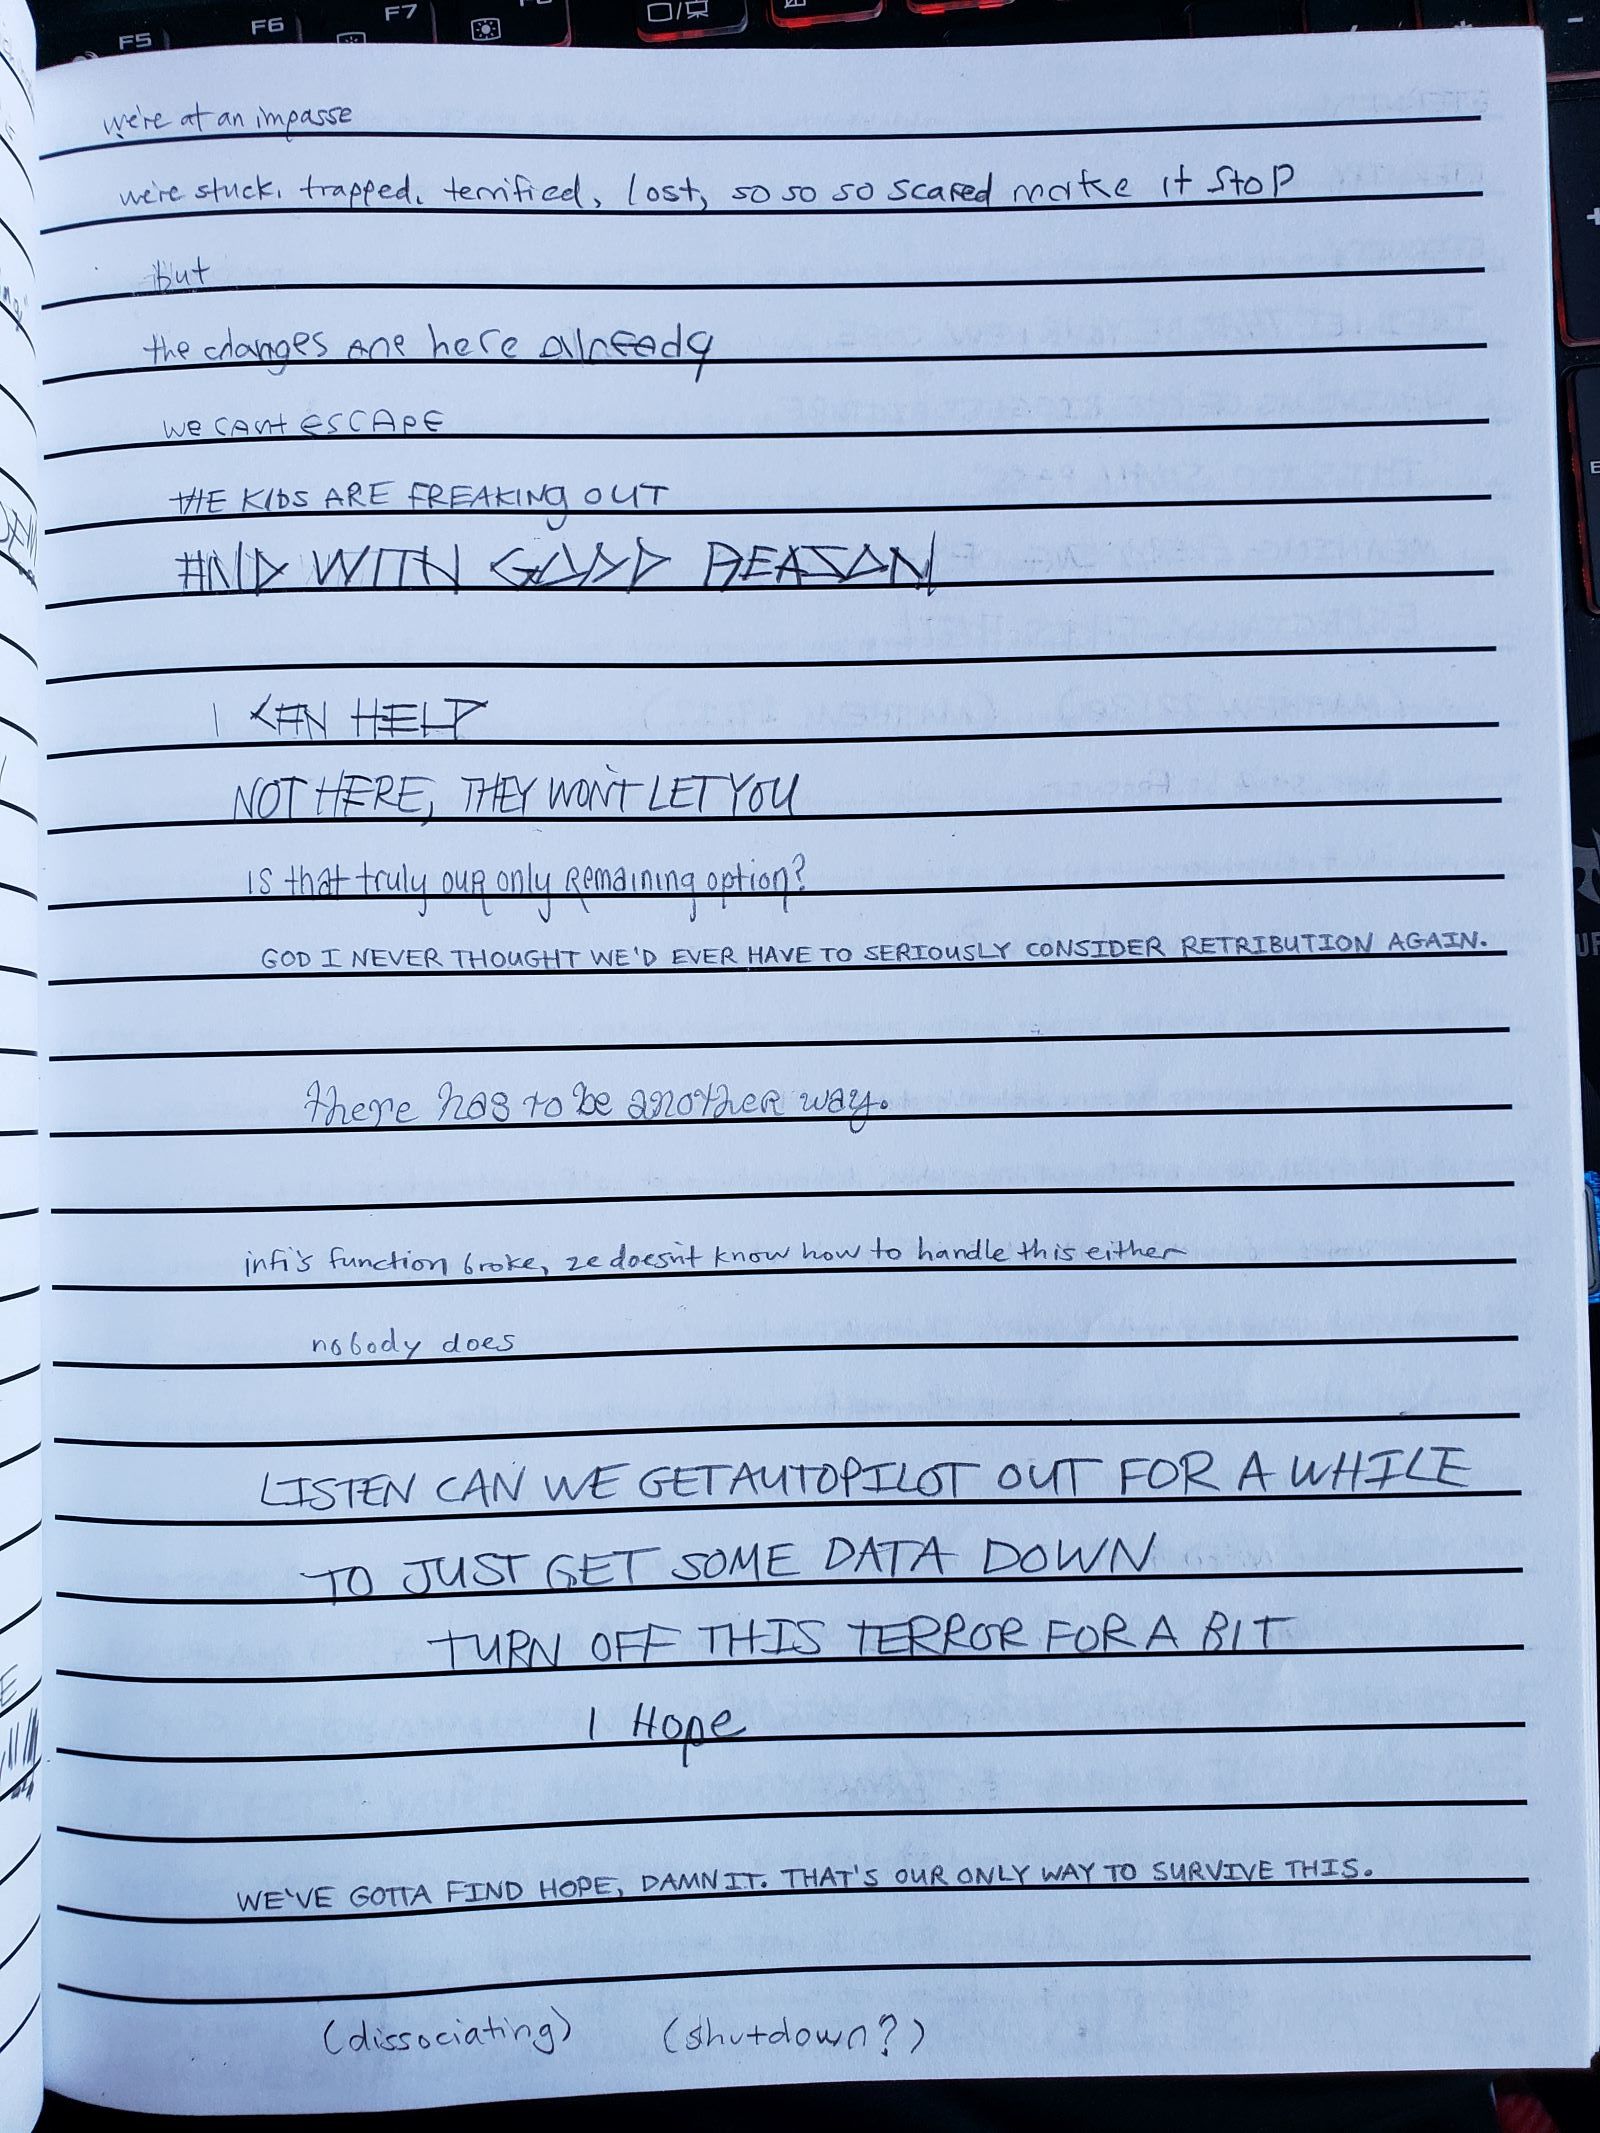 F5 F6 F7
we're at an impasse
we're stuck. trapped. terrified, lost, so so so scared make it stop
but
the changes are here already
we cant ESCAPE
THE KIDS ARE FREAKING OUT
AND WITH GOOD REASON
I CAN HELP
NOT HERE, THEY WON'T LET YOU
is that truly our only remaining option?
GOD I NEVER THOUGHT WE'D EVER HAVE TO SERIOUSLY CONSIDER RETRIBUTION AGAIN.
there has to be another way.
infi's function broke, ze doesn't know how to handle this either
nobody does
LISTEN CAN WE GET AUTOPILOT OUT FOR A WHILE
TO JUST GET SOME DATA DOWN
TURN OFF THIS TERROR FOR A BIT
I Hope
WE'VE GOTTA FIND HOPE, DAMN IT. THAT'S OUR ONLY WAY TO SURVIVE THIS.
(dissociating) (shutdown?)